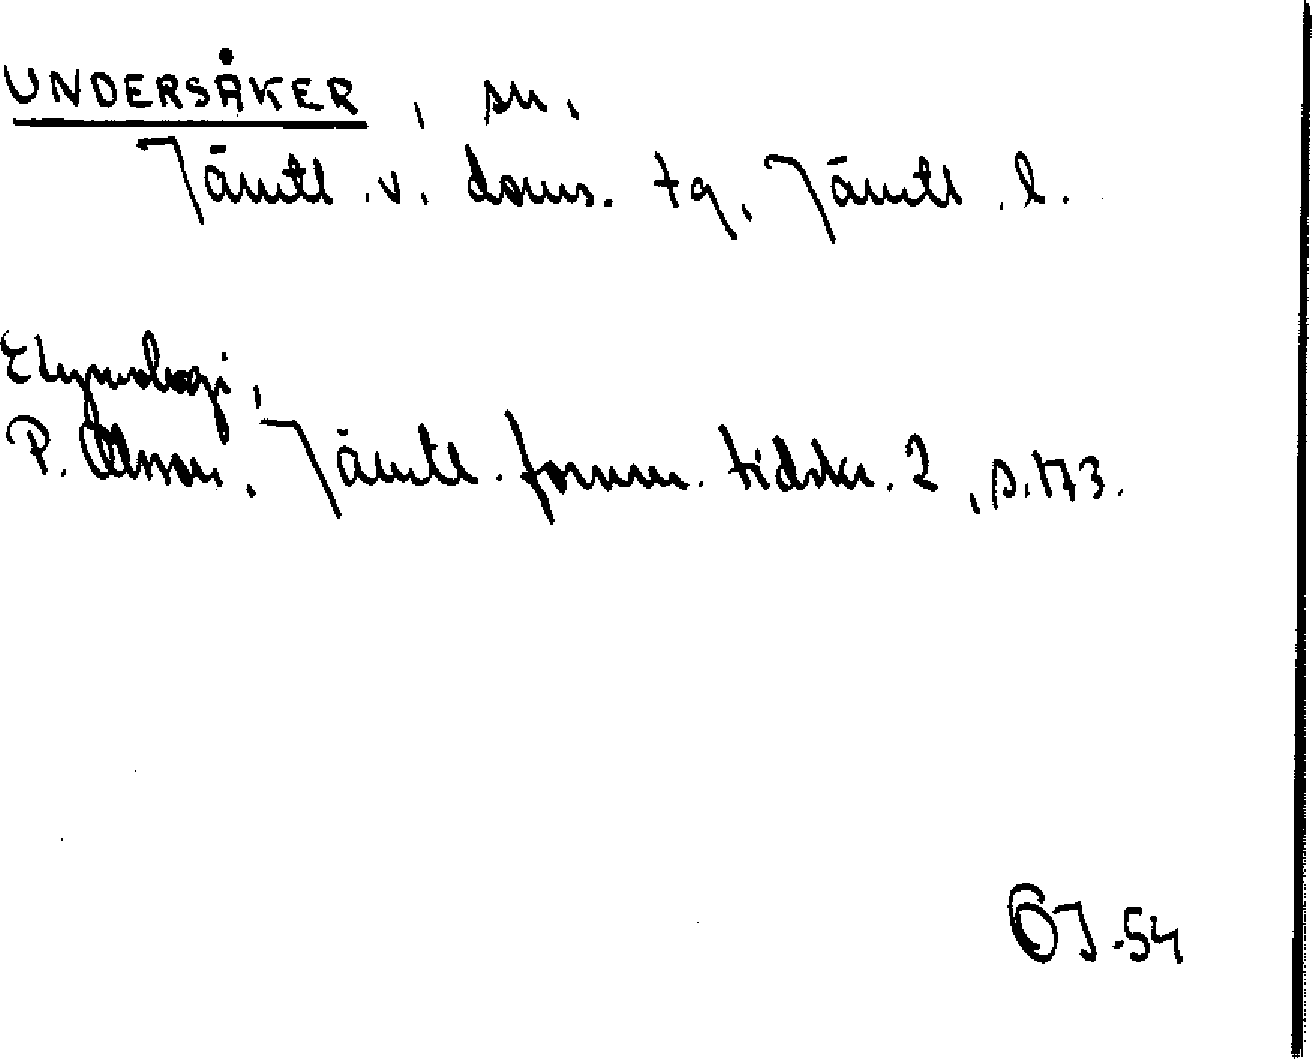 UNDERSÅKER, sn,
Jämtl. v. doms. tg, Jämtl. l.
Etymologi,
P. Olsson, Jämtl. fornm. tidskr. 2, s. 173.
OJ-54